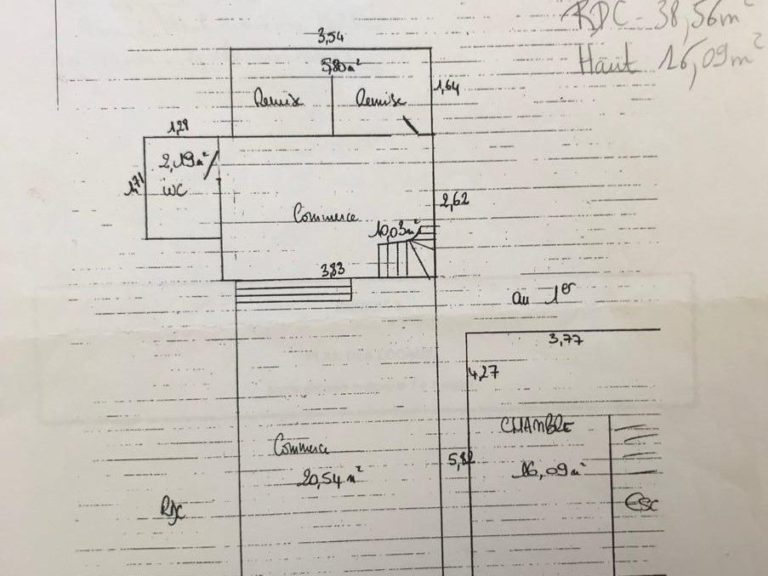 RDC = 38,56m²
Haut 16,09m²
3,54
5,80m²
Remise
Remise
1,64
1,28
2,19m²
WC
1,71
Commerce
2,62
10,03m²
3,83
au 1er
3,77
4,27
CHAMBRE
16,09m²
Commerce
20,54m²
5,82
RDC
ESC